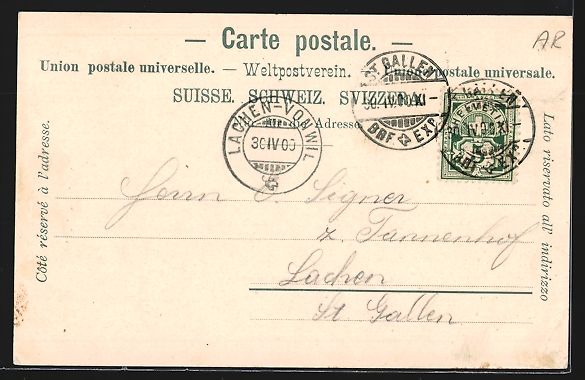 AR
— Carte postale. —
Union postale universelle. — Weltpostverein. postale universale.
SUISSE. SCHWEIZ. SVIZZERA.
Adresse.
ST. GALLEN
30.IV.00.XI
BRF EXP.
HELVETIA
5
LACHEN-VONWIL
30 IV 00
Côté réservé à l'adresse.
Lato riservato all' indirizzo
Herrn Signer
z. Tannenhof
Lachen
St Gallen